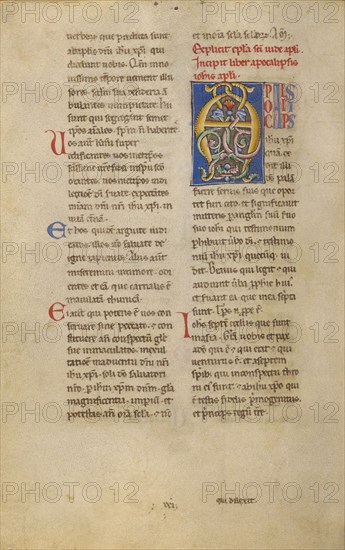 uerborum que predicta sunt
ab aplis dni nri ihu xpi qui
dicebant uobis. Qm in no
uissimo tempore uenient illu
sores. scdm sua desideria am
bulantes in impietate. Hi
sunt qui segregant semet
ipsos. aiales. spm n habentes.
Uos aut kmi super
edificantes uos metipsos
sanctissime nre fidei in spu sco
orantes. uos metipsos in di
lectione di seruate. expectantes
miam dni nri ihu xpi. in
uitam etnam.
Et hos quidem arguite iudi
catos. illos uo saluate de
igne rapientes. Aliis aut
miseremini in timore. odi
entes et eam que carnalis e
maculatam tunicam.
Ei aut qui potens e uos con
seruare sine peccato. et con
stituere an conspectum gle
sue immaculatos. in exul
tatione in aduentu dni nri
ihu xpi. soli do saluatori
nro. p ihm xpm dnm. gla
magnificentia. imperium et
potestas an oia scla. et nc
et in oia scla sclorum. Am.
Explicit epla sci iude apli.
Incipit liber apocalipsis
iohis apli.
APOCALIPS
ihu xpi
quam de
dit illi
ds palam
facere seruis suis que opor
tet fieri cito. et significauit
mittens p anglm suum seruo
suo iohi qui testimonium
phibuit ubo di. et testimo
nium ihu xpi quecumq; ui
dit. Beatus qui legit et qui
audiunt uba pphie hui.
et seruant ea que in ea scpta
sunt. Tps n. ppe e.
Iohs septem ecclesiis que sunt
in asia. Gra uobis et pax
ab eo qui e. et qui erat. et qui
uenturus e. et a septem
spibus qui in conspectu thro
ni ei sunt. et ab ihu xpo qui
e testis fidelis. pmogenitus
et princeps regum tre.
qui dilexit
PHOTO12